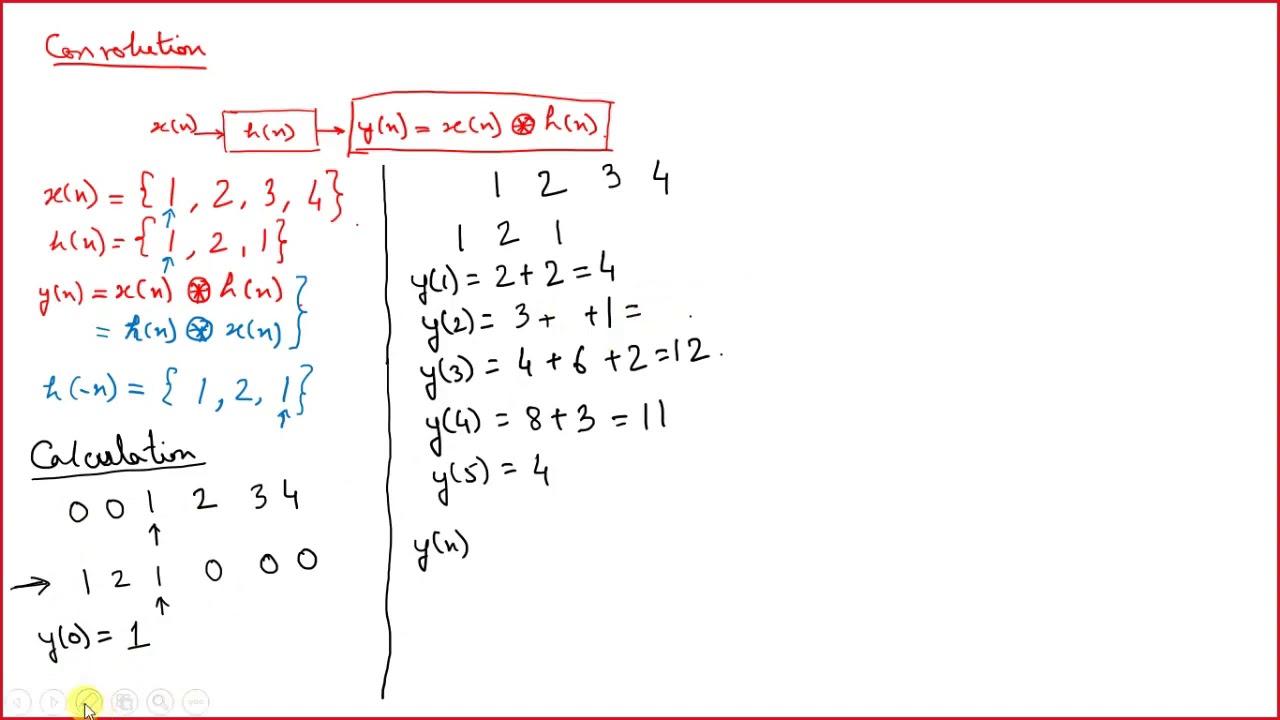 Convolution
x(n) → h(n) → y(n) = x(n) ⊛ h(n)
x(n) = { 1 , 2 , 3 , 4 }
↑
h(n) = { 1 , 2 , 1 }
↑
y(n) = x(n) ⊛ h(n)
= h(n) ⊛ x(n)
h(-n) = { 1 , 2 , 1 }
↑
Calculation
0 0 1 2 3 4
↑
→ 1 2 1 0 0 0
↑
y(0) = 1
1 2 3 4
1 2 1
y(1) = 2 + 2 = 4
y(2) = 3 + + 1 =
y(3) = 4 + 6 + 2 = 12
y(4) = 8 + 3 = 11
y(5) = 4
y(n)